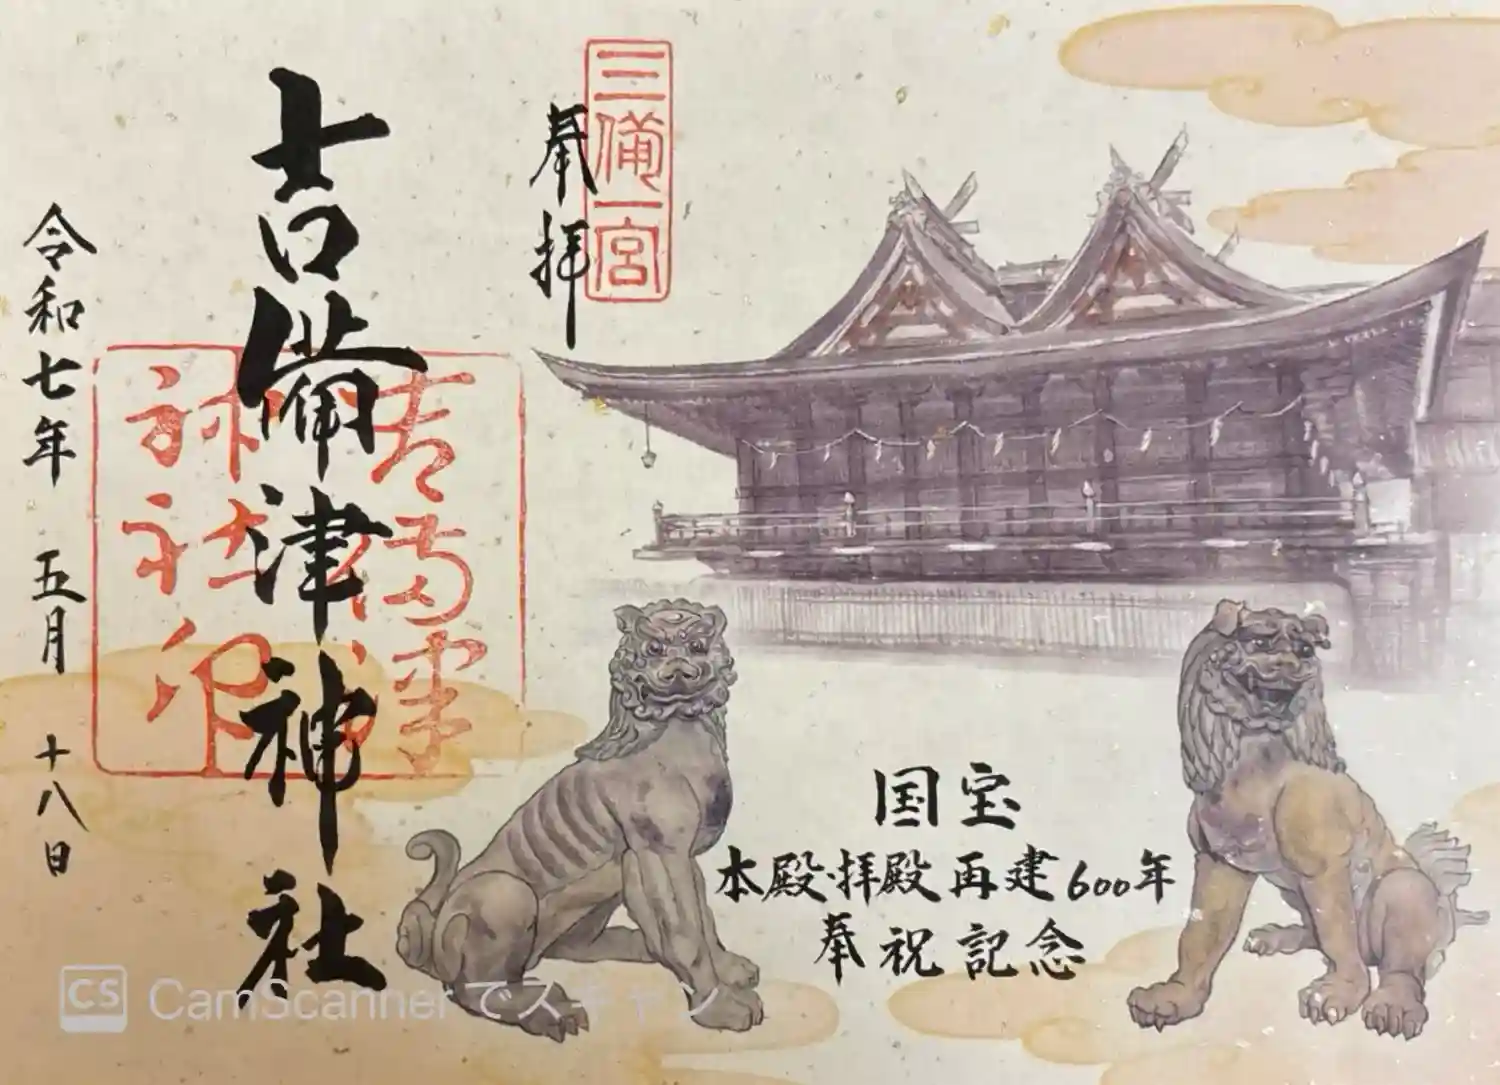 三備一宮
奉拝
吉備津神社
吉備津
神社印
令和七年 五月 十八日
国宝
本殿・拝殿再建600年
奉祝記念
CS CamScannerでスキャン